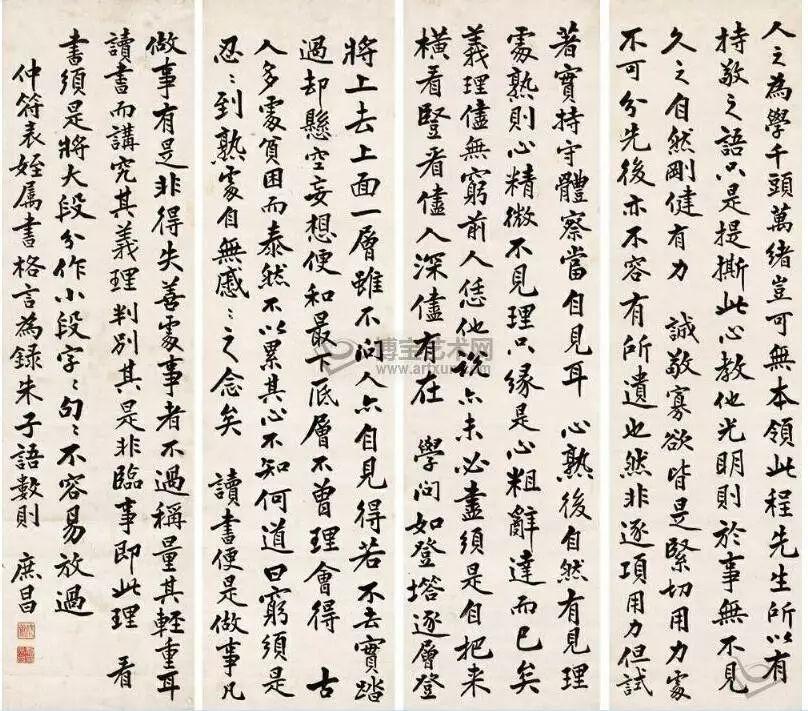 人之為學千頭萬緒豈可無本領此程先生所以有
持敬之語只是提撕此心教他光明則於事無不見
久之自然剛健有力 誠敬寡欲皆是緊切用力處
不可分先後亦不容有所遺也然非逐項用力但試
著實持守體察當自見耳 心熟後自然有見理
處熟則心精微不見理只緣是心粗辭達而已矣
義理儘無窮前人恁他說亦未必盡須是自把来
橫看豎看儘入深儘有在 學問如登塔逐層登
將上去上面一層雖不問人亦自見得若不去實踏
過却懸空妄想便和最下底層不曾理會得 古
人多處貧困而泰然不以累其心不知何道曰窮須是
忍〻到熟處自無慼〻之念矣 讀書便是做事凡
做事有是非得失善處事者不過稱量其輕重耳
讀書而講究其義理判別其是非臨事即此理 看
書須是將大段分作小段字〻句〻不容易放過
仲符表姪屬書格言為錄朱子語數則 庶昌
博宝艺术网
www.artxun.com